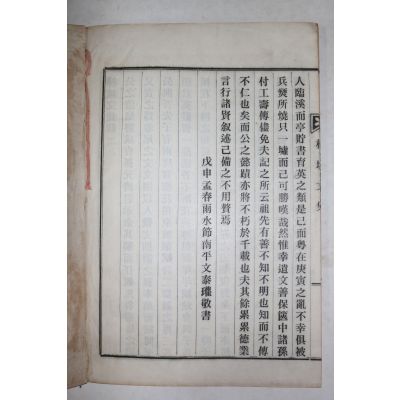 人臨溪而亭貯書育英之類是已而粤在庚寅之亂不幸俱被
兵燹所燒只一墟而已可勝嘆哉然惟幸遺文善保篋中諸孫
付工壽傳儘免夫記之所云祖先有善不知不明也知而不傳
不仁也矣而公之懿蹟亦將不朽於千載也夫其餘累累德業
言行諸賢叙述已備之不用贅焉
戊申孟春雨水節南平文泰瓘敬書